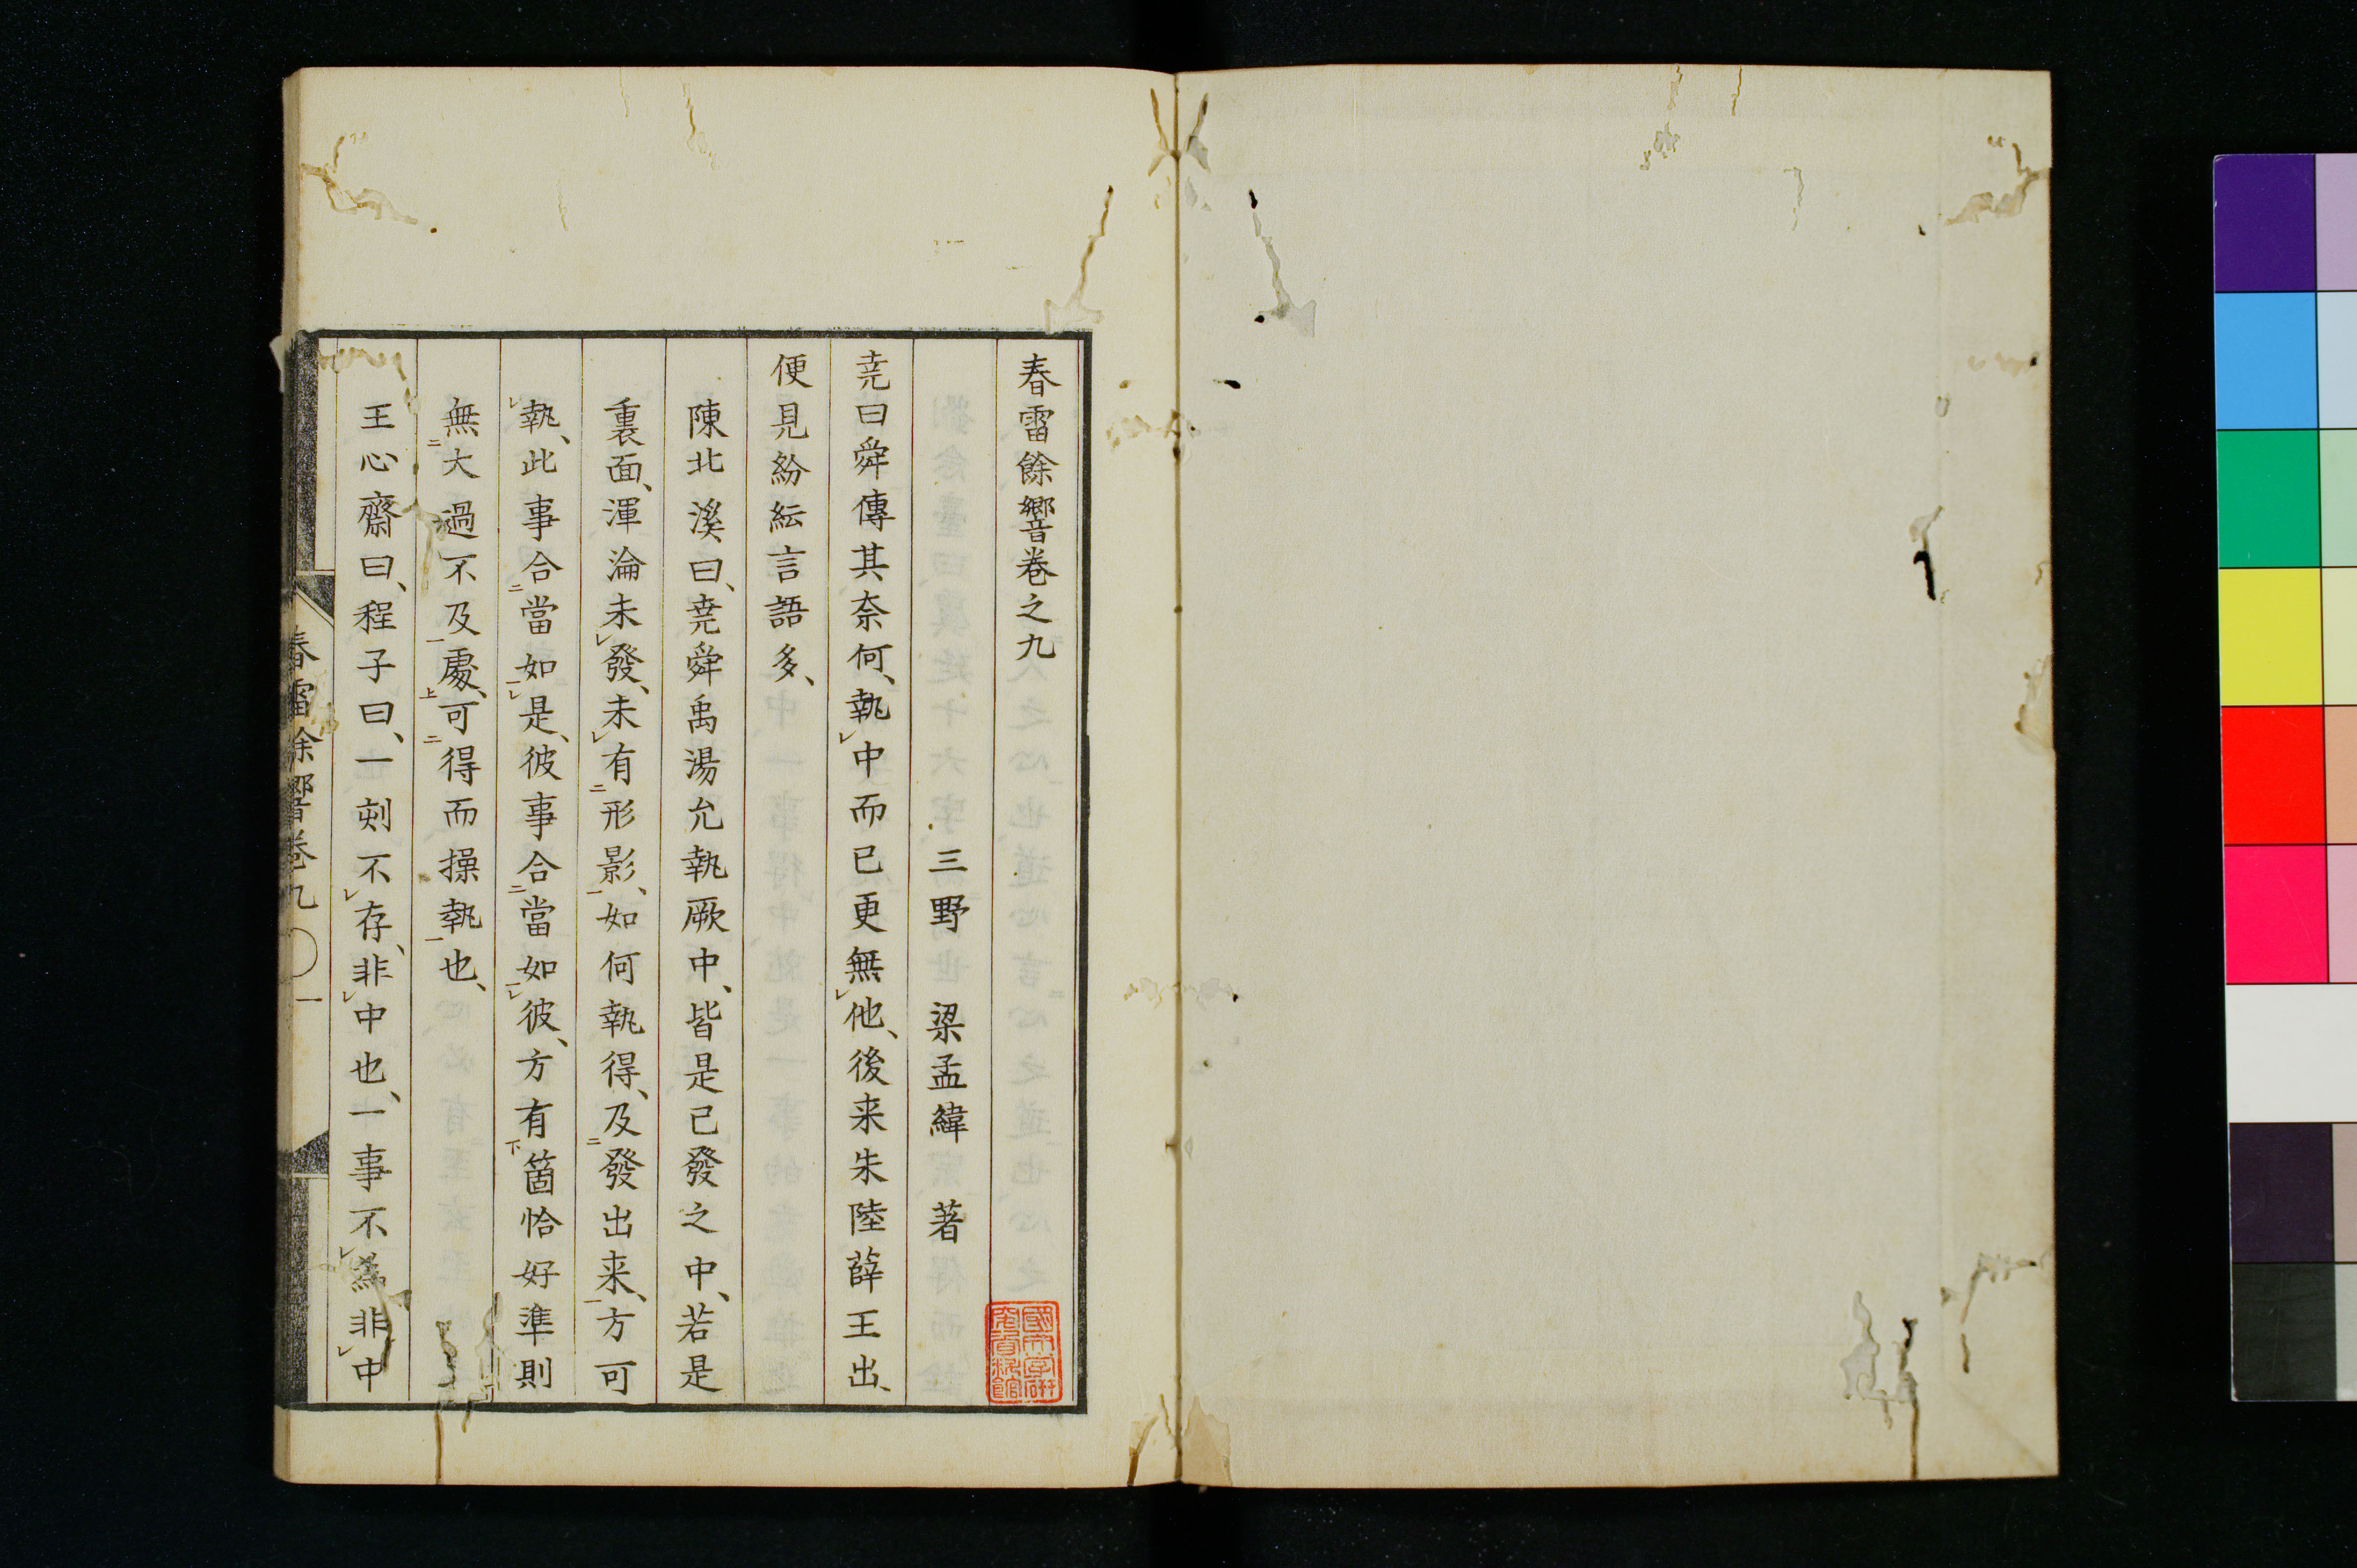 春雷餘響卷之九
三野　梁孟緯　著
堯曰舜傳其奈何、執中而已更無他、後来朱陸薛王出、
便見紛紜言語多、
陳北溪曰、堯舜禹湯允執厥中、皆是已發之中、若是
裏面、渾淪未發、未有形影、如何執得、及發出来、方可
執、此事合當如是、彼事合當如彼、方有箇恰好準則
無大過不及處、可得而操執也、
王心齋曰、程子曰、一刻不存、非中也、一事不爲非中
春雷餘響卷九　一
國文学研究資料館